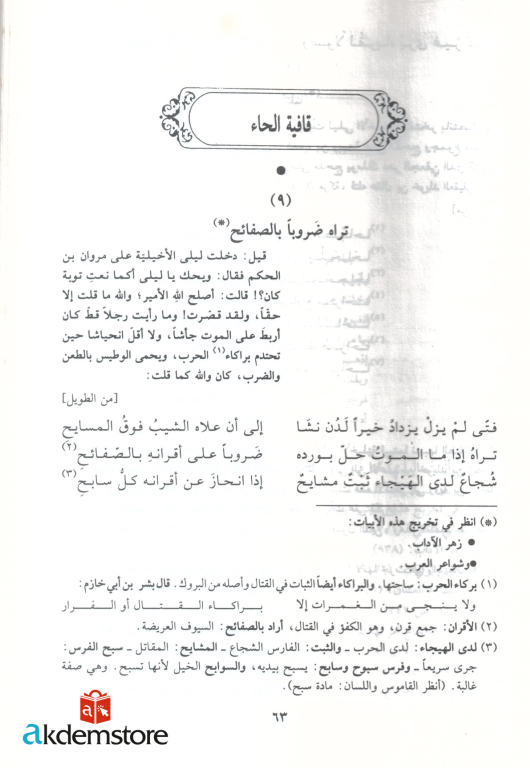 قافية الحاء
(٩)
تراه ضَروباً بالصفائح(*)
قيل: دخلت ليلى الأخيليّة على مروان بن
الحكم فقال: ويحك يا ليلى أكما نعتِ توبة
كان؟! قالت: أصلح الله الأمير؛ والله ما قلت إلا
حقّاً، ولقد قصّرت! وما رأيت رجلاً قطّ كان
أربطَ على الموت جأشاً، ولا أقلّ انحياشا حين
تحتدم براكاء(١) الحرب، ويحمى الوطيس بالطعن
والضرب، كان والله كما قلت:
[من الطويل]
فتًى لمْ يزلْ يزدادُ خيراً لَدُن نشَا إلى أن علاه الشيبُ فوقُ المسايح
تراهُ إذا ما الموتُ حلّ بورده ضَروباً على أقرانهِ بالصّفائحِ(٢)
شُجاعٌ لدى الهيْجاء ثَبْتٌ مشايحٌ إذا انحازَ عن أقرانه كلُّ سابحِ(٣)
(*) انظر في تخريج هذه الأبيات:
● زهر الآداب.
● وشواعر العرب.
(١) بركاء الحرب: ساحتها. والبراكاء أيضاً الثبات في القتال وأصله من البروك. قال بشر بن أبي خازم:
ولا ينجي من الغمرات إلا براكاء القتال أو الفرار
(٢) الأقران: جمع قرن، وهو الكفؤ في القتال، أراد بالصفائح: السيوف العريضة.
(٣) لدى الهيجاء: لدى الحرب ـ والثبت: الفارس الشجاع ـ المشايح: المقاتل ـ سبح الفرس:
جرى سريعاً ـ وفرس سبوح وسابح: يسبح بيديه، والسوابح الخيل لأنها تسبح. وهي صفة
غالبة. (أنظر القاموس واللسان: مادة سبح).
٦٣
akdemstore